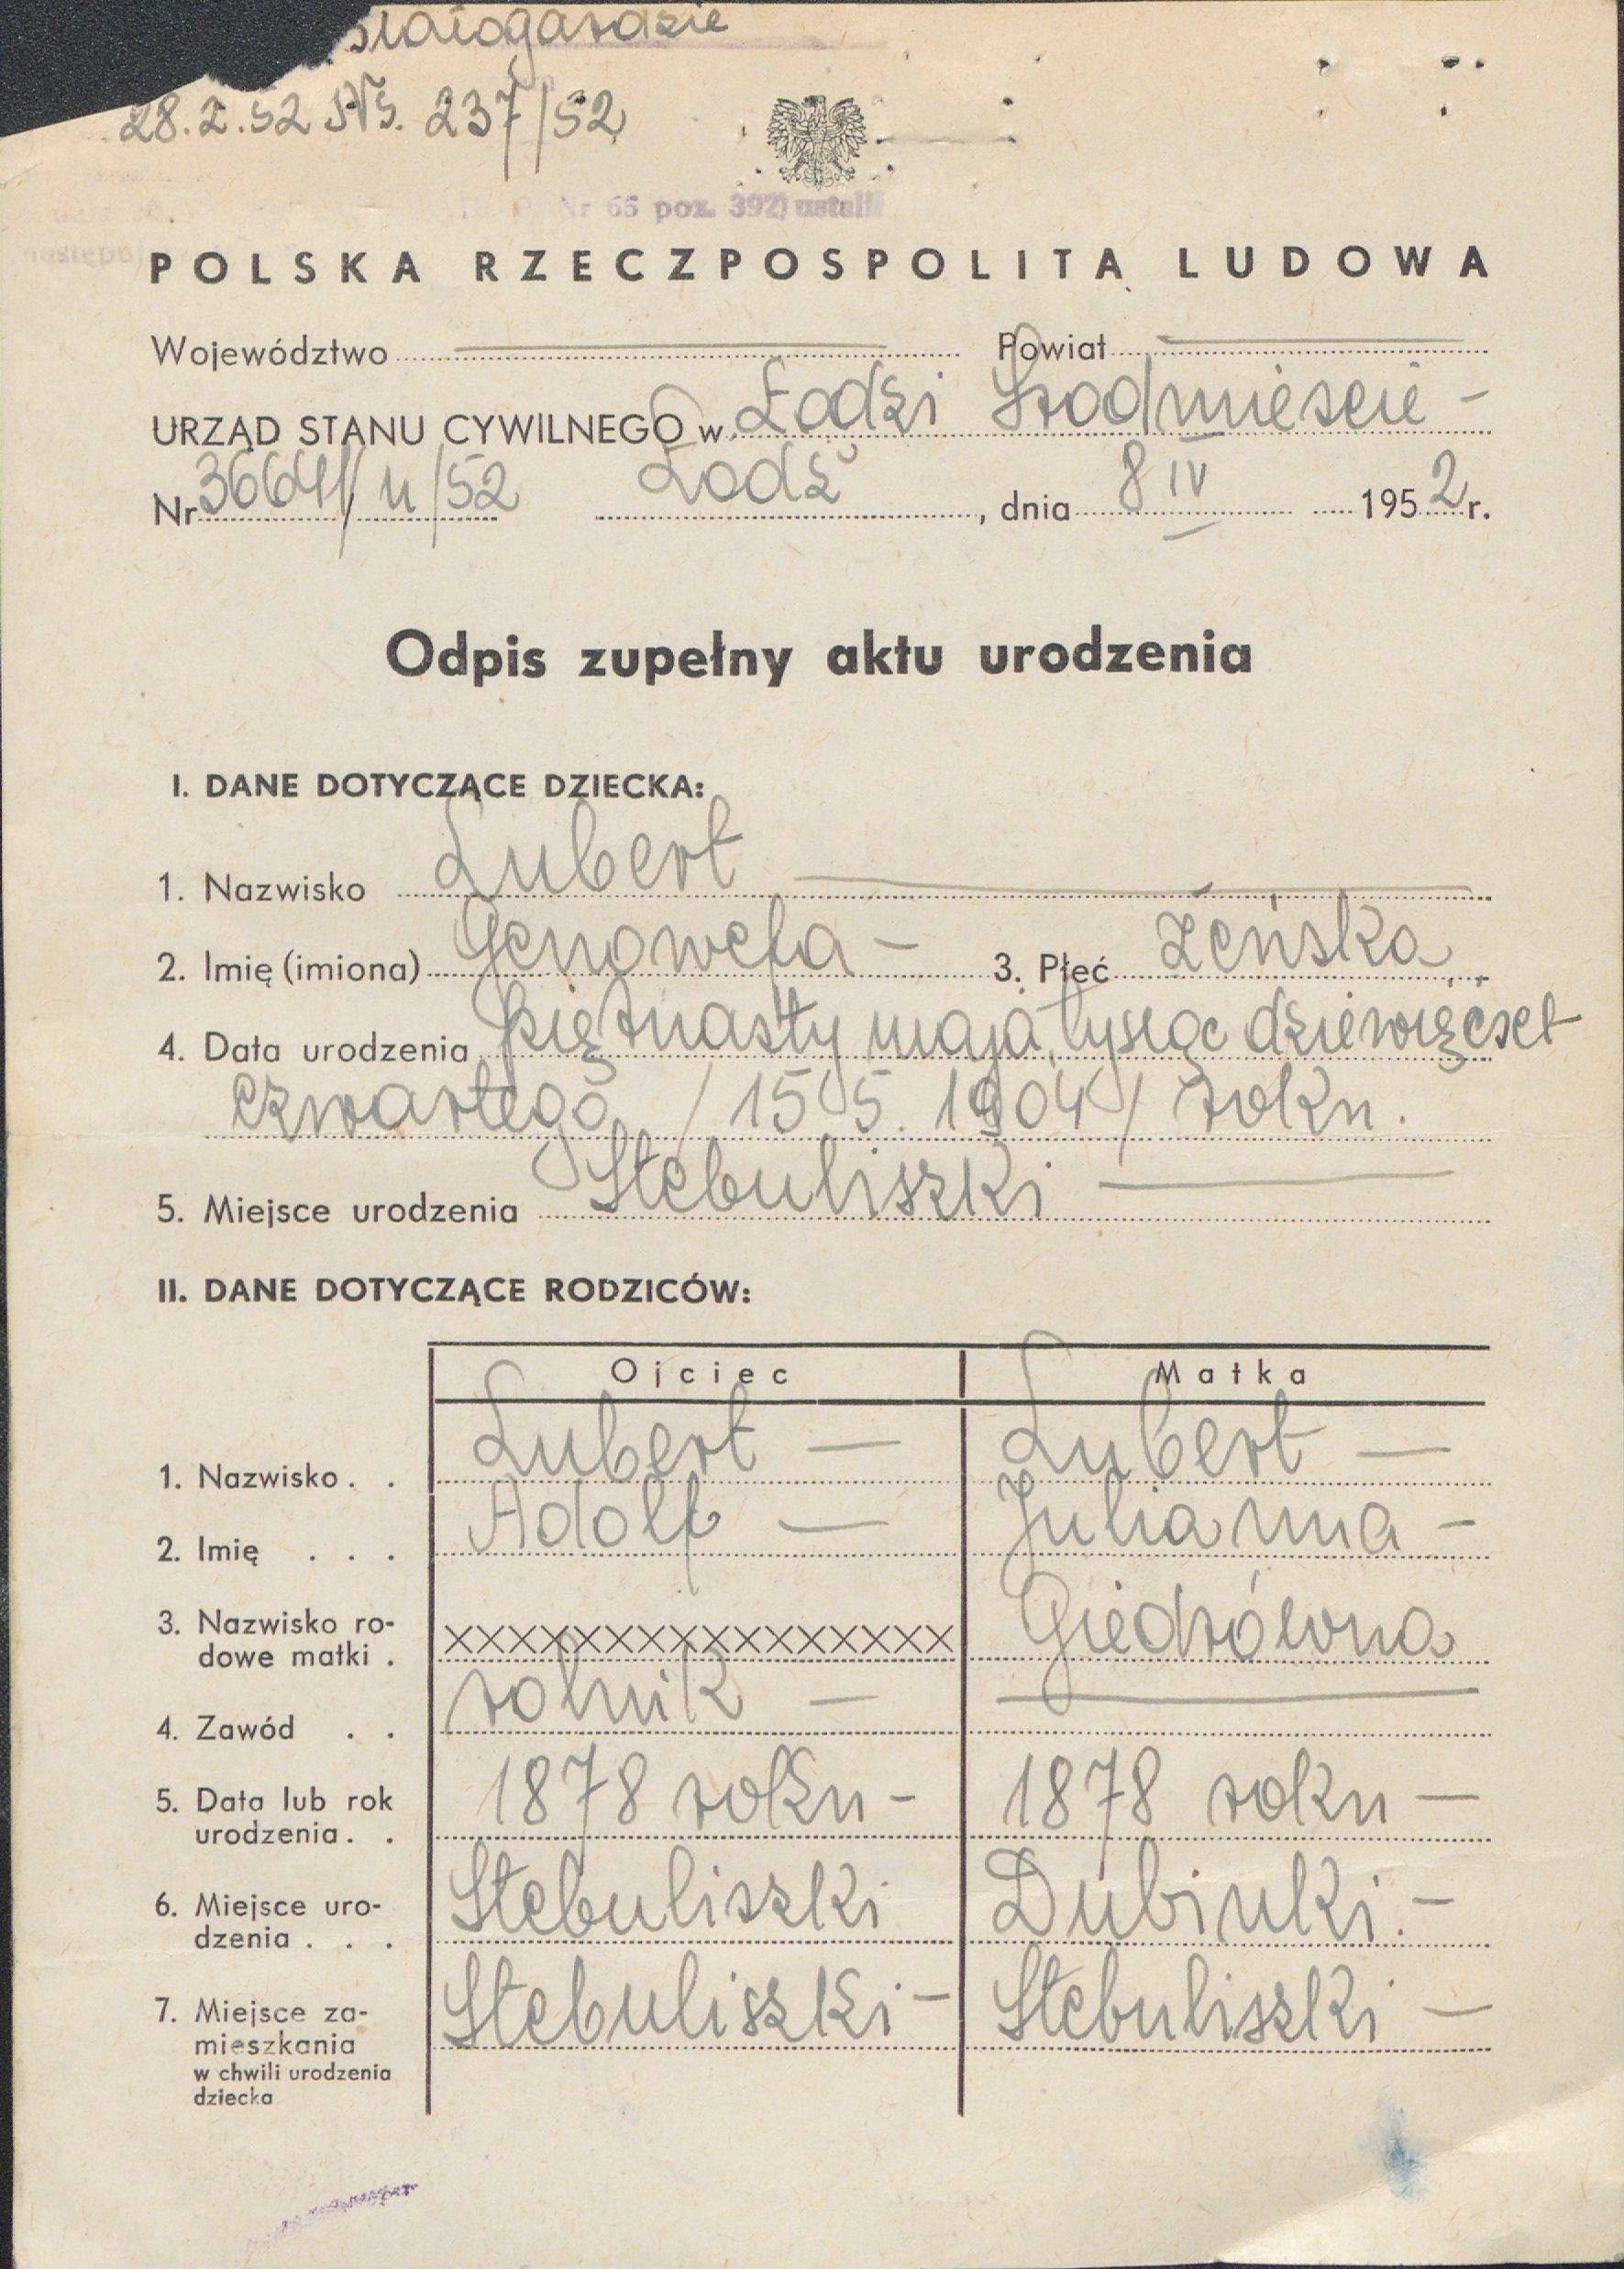 28.2.52 Ns. 237/52
Nr 65 poz. 392) ustalił
POLSKA RZECZPOSPOLITA LUDOWA
Województwo Powiat
URZĄD STANU CYWILNEGO w Łodzi Śródmieście -
Nr 3664/u/52 Łódź, dnia 8 IV 1952 r.
Odpis zupełny aktu urodzenia
I. DANE DOTYCZĄCE DZIECKA:
1. Nazwisko Lubert
2. Imię (imiona) Genowefa - 3. Płeć żeńska
4. Data urodzenia piętnasty maja tysiąc dziewięćset
czwartego /15 5. 1904/ roku.
5. Miejsce urodzenia Stebuliszki
II. DANE DOTYCZĄCE RODZICÓW:
Ojciec Matka
1. Nazwisko . . Lubert — Lubert —
2. Imię . . . Adolf — Julianna -
3. Nazwisko ro-
dowe matki . XXXXXXXXXXXXXXXX Giedrówna
4. Zawód . . rolnik —
5. Data lub rok
urodzenia . . 1878 roku - 1878 roku —
6. Miejsce uro-
dzenia . . . Stebuliszki Dubinki. -
7. Miejsce za-
mieszkania Stebuliszki - Stebuliszki —
w chwili urodzenia
dziecka